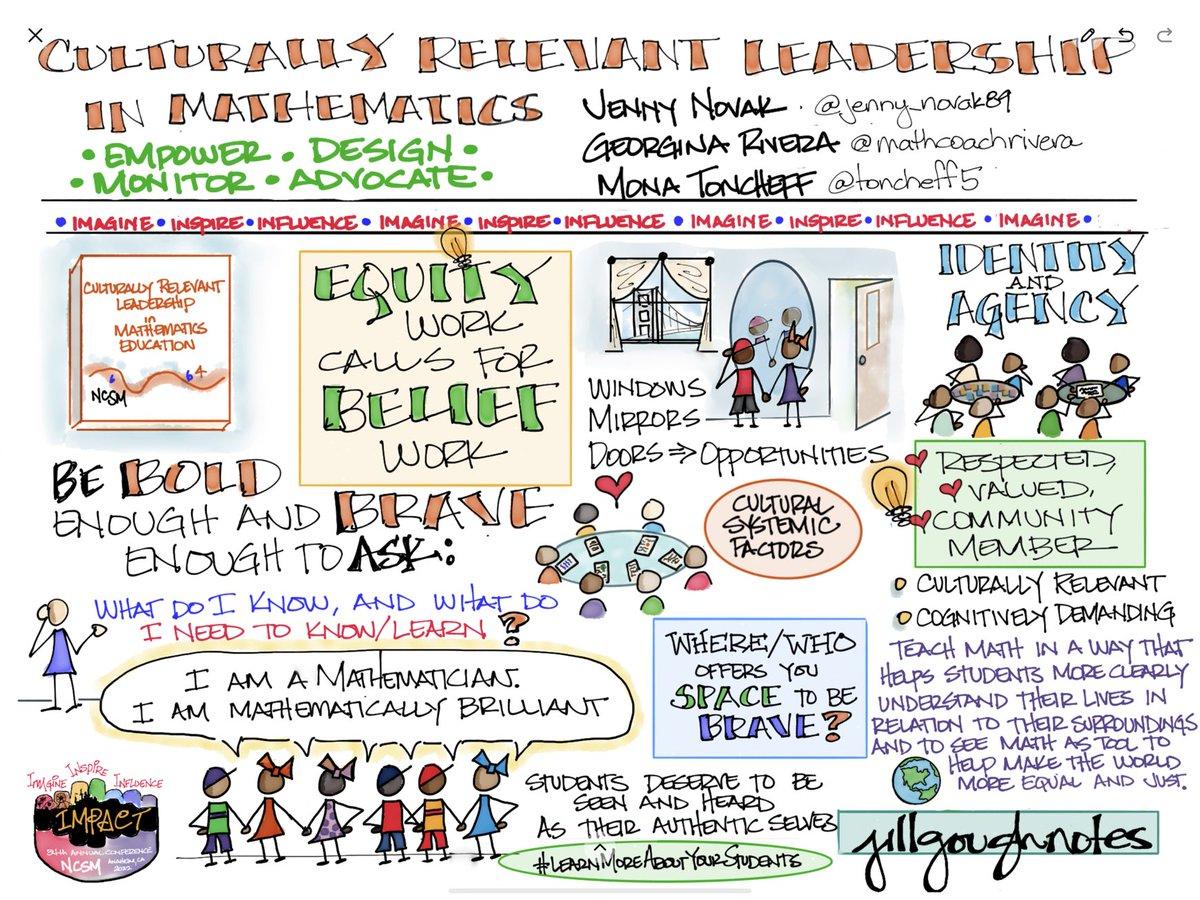 CULTURALLY RELEVANT LEADERSHIP
IN MATHEMATICS
• EMPOWER • DESIGN •
• MONITOR • ADVOCATE •
JENNY NOVAK • @jenny_novak89
GEORGINA RIVERA @mathcoachrivera
MONA TONCHEFF @toncheff5
• IMAGINE • INSPIRE • INFLUENCE • IMAGINE • INSPIRE • INFLUENCE • IMAGINE • INSPIRE • INFLUENCE • IMAGINE •
CULTURALLY RELEVANT
LEADERSHIP
in
MATHEMATICS
EDUCATION
NCSM
EQUITY
WORK
CALLS FOR
BELIEF
WORK
WINDOWS
MIRRORS
DOORS ⇒ OPPORTUNITIES
IDENTITY
AND
AGENCY
RESPECTED,
VALUED,
COMMUNITY
MEMBER
• CULTURALLY RELEVANT
• COGNITIVELY DEMANDING
TEACH MATH IN A WAY THAT
HELPS STUDENTS MORE CLEARLY
UNDERSTAND THEIR LIVES IN
RELATION TO THEIR SURROUNDINGS
AND TO SEE MATH AS TOOL TO
HELP MAKE THE WORLD
MORE EQUAL AND JUST.
BE BOLD
ENOUGH AND BRAVE
ENOUGH TO ASK:
WHAT DO I KNOW, AND WHAT DO
I NEED TO KNOW/LEARN ?
CULTURAL
SYSTEMIC
FACTORS
I AM A MATHEMATICIAN.
I AM MATHEMATICALLY BRILLIANT
WHERE/WHO
OFFERS YOU
SPACE TO BE
BRAVE?
STUDENTS DESERVE TO BE
SEEN AND HEARD
AS THEIR AUTHENTIC SELVES
#LEARNMOREABOUTYOURSTUDENTS
IMAGINE INSPIRE INFLUENCE
IMPACT
54th ANNUAL CONFERENCE
NCSM ANAHEIM, CA
2022
jillgoughnotes